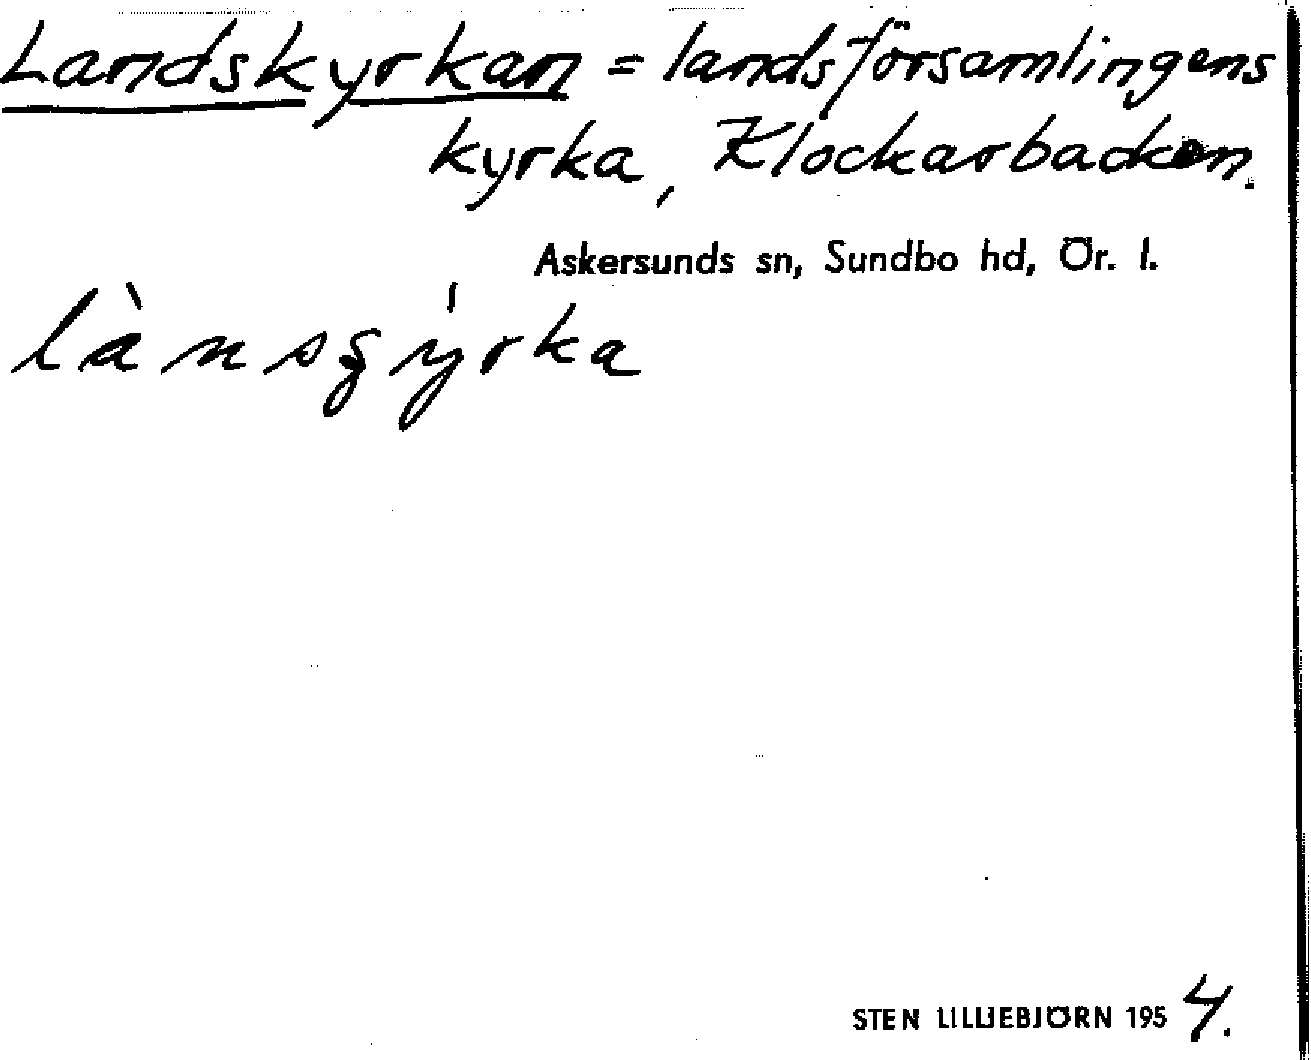 Landskyrkan = landsförsamlingens
kyrka, Klockarbacken.
Askersunds sn, Sundbo hd, Ör. l.
STEN LILLJEBJÖRN 1954.